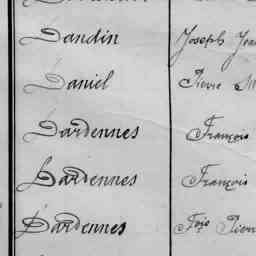 Dandin Joseph Jean
Daniel Pierre M
Dardennes François
Dardennes François
Dardennes Pierre